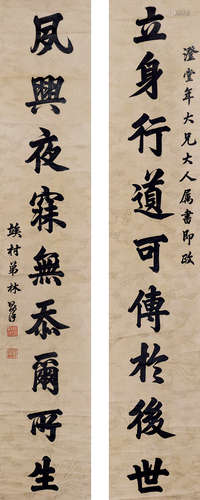 澄堂年大兄大人属書即政
立身行道可傳於後世
夙興夜寐無忝爾所生
弟林